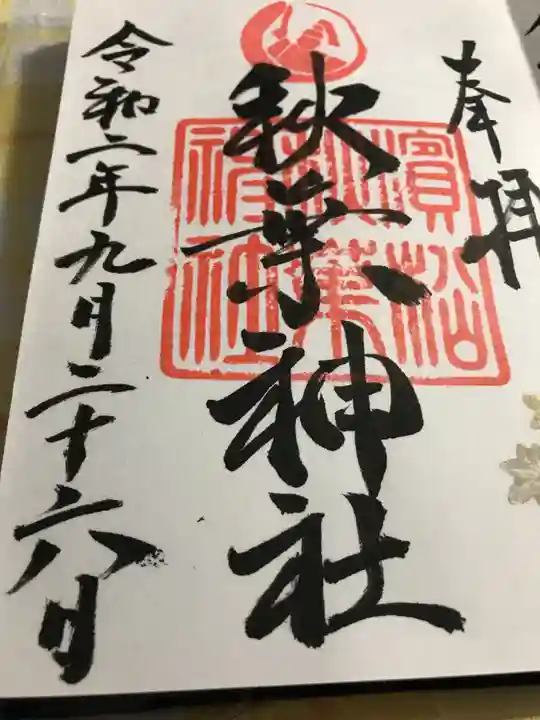 奉拝
秋葉神社
濱松
秋葉
神社
令和二年九月二十六日